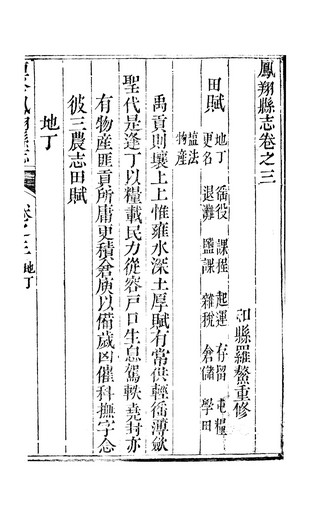 鳳翔縣志卷之三
知縣羅鰲重修
田賦 地丁 徭役 課程 起運 存留 屯糧
更名 退灘 鹽課 雜稅 倉儲 學田
鹽法
物產
禹貢則壤上上惟雍水深土厚賦有常供輕徭薄斂
聖代是逢丁以糧載民力從容戶口生息駕軼堯封亦
有物產匪貢所庸更積倉庾以備歲凶催科撫字念
彼三農志田賦
地丁
卷之三 地丁